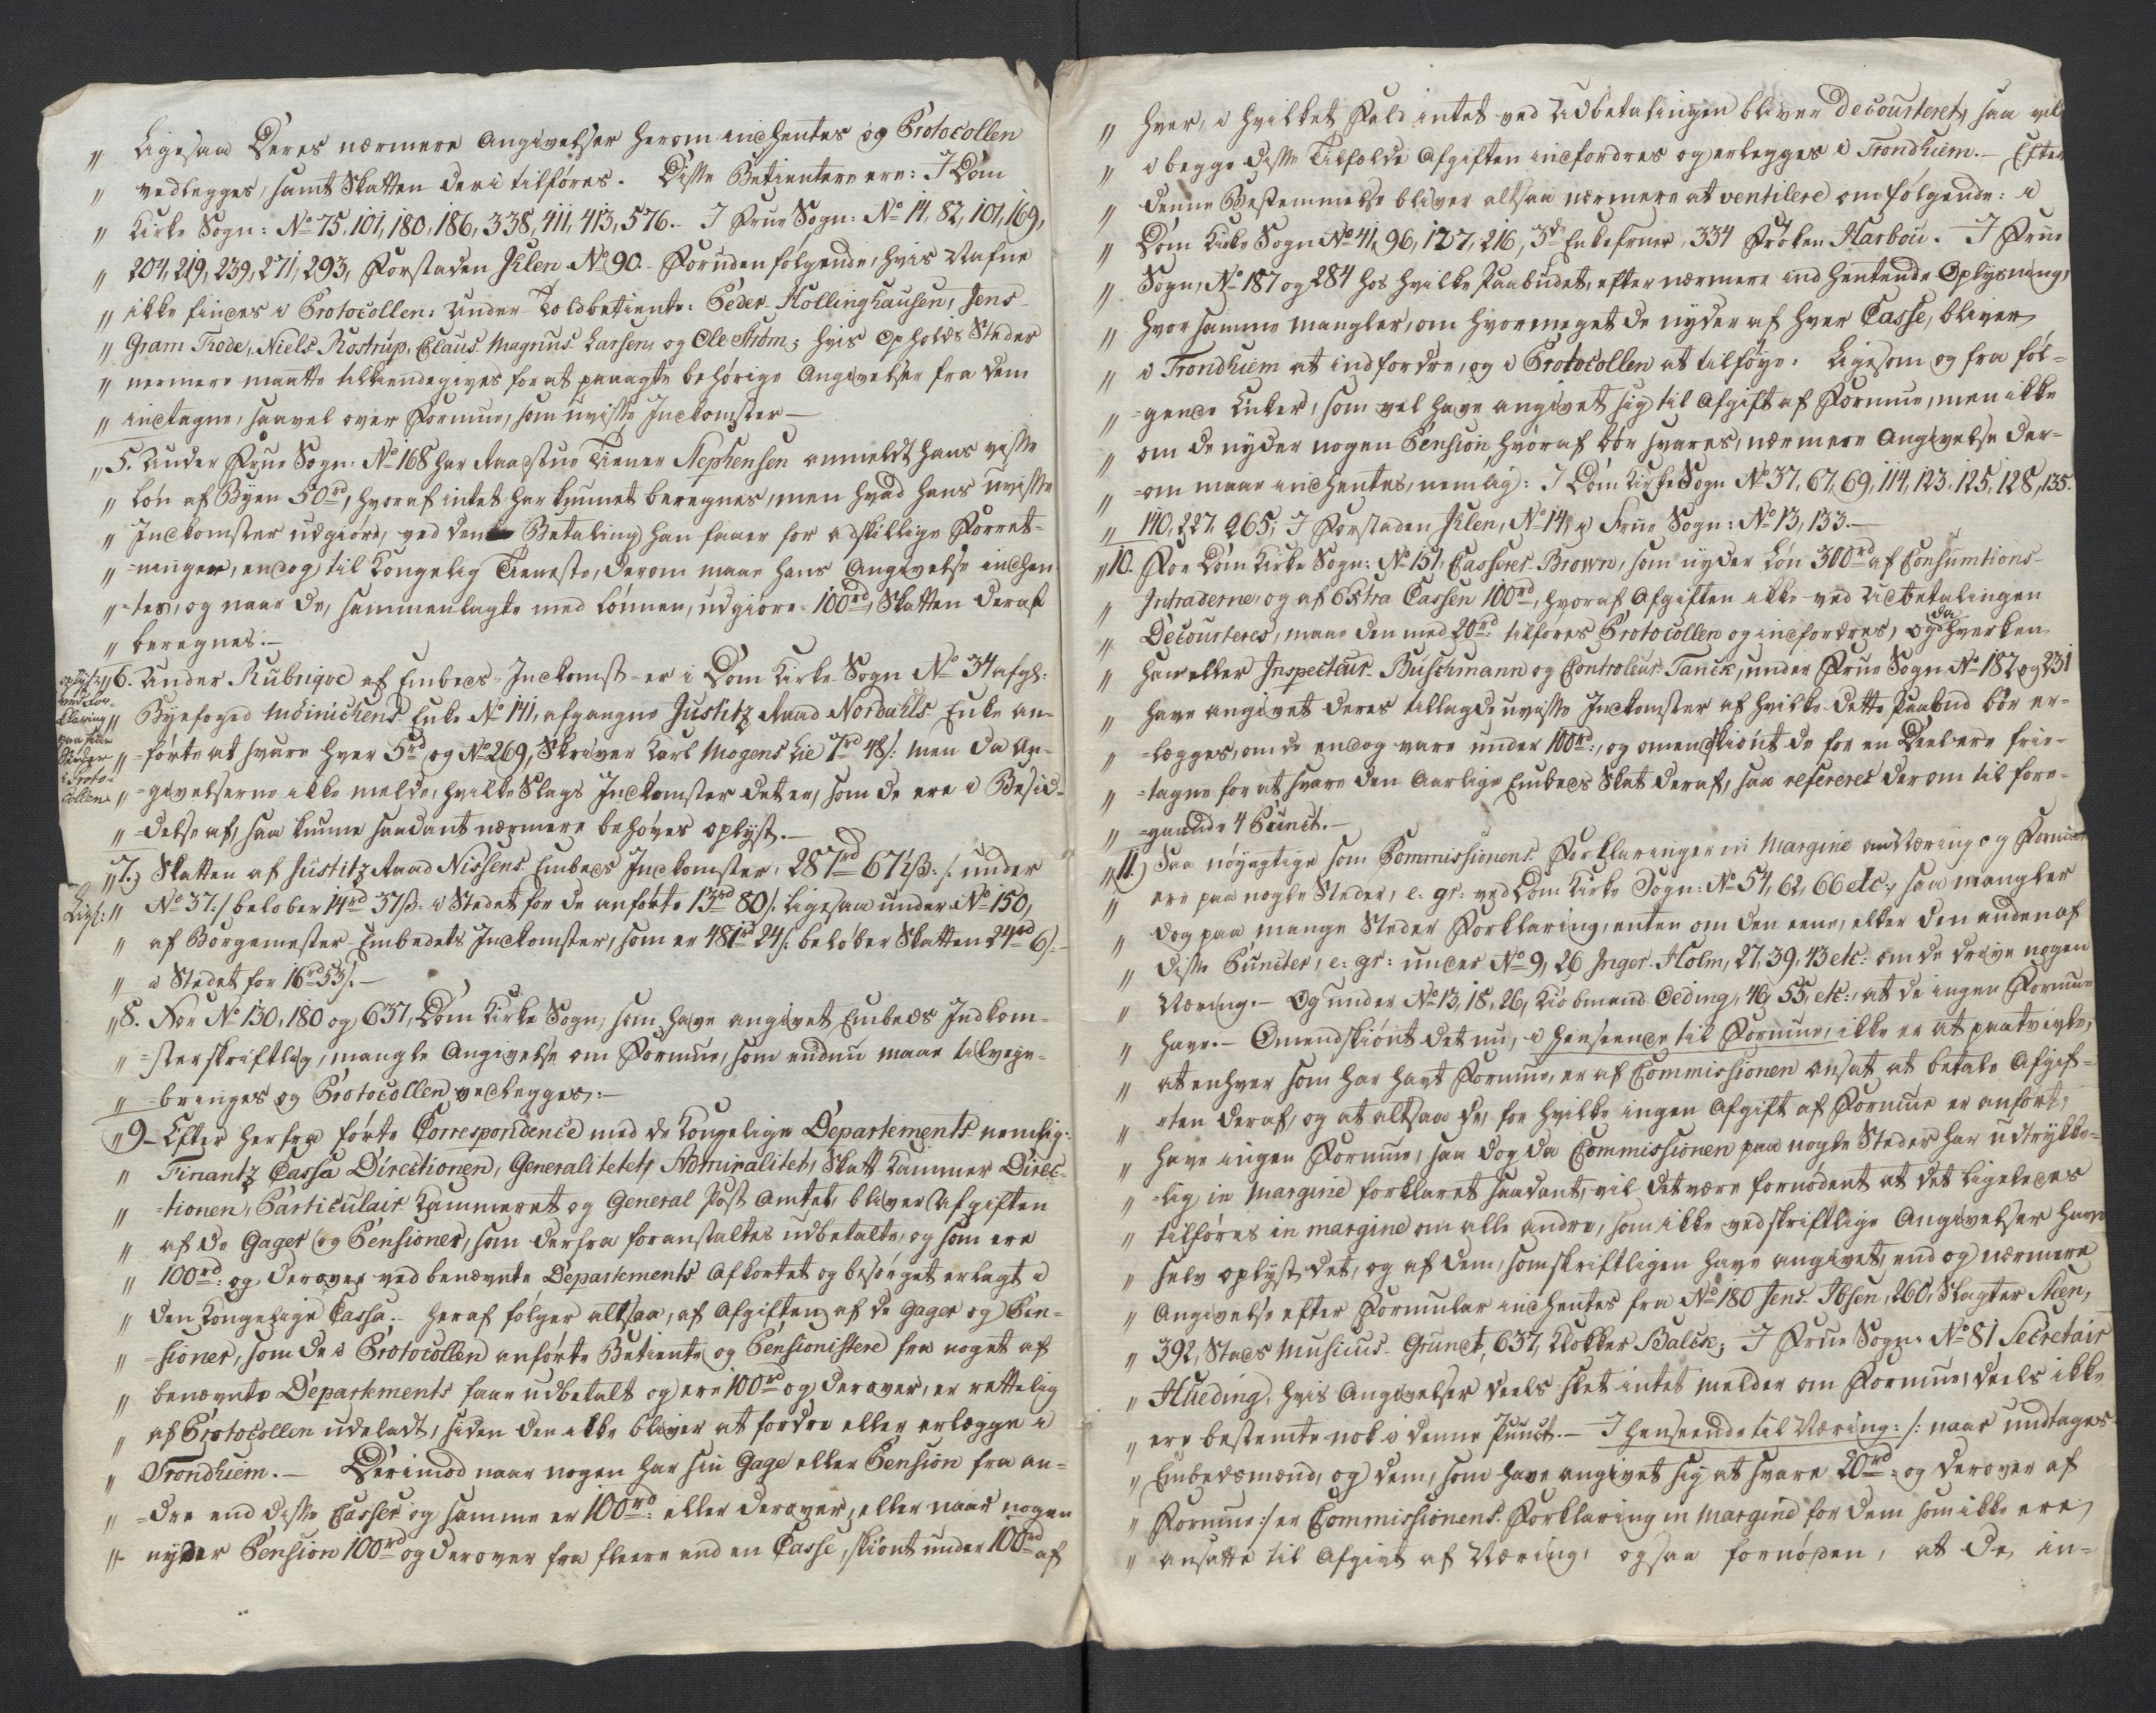 " Ligesaa Deres nærmere Angivelser herom indhentes og Protocollen
" vedlegges, samt Skatten deri tilføres. Disse Betientere ere: I Dom
" Kirke Sogn: No 75, 101, 180, 186, 338, 411, 413, 576. I Frue Sogn: No 14, 82, 101, 169,
" 204, 219, 239, 271, 293, Forstaden Ihlen No 90. Foruden følgende, hvis Nafne
" ikke findes i Protocollen: Under Toldbetiente: Peder Hollinghausen, Jens
" Gram Trode, Niels Rostrup, Claus Magnus Larsen, og Ole Strøm; hvis Opholds Steder
" nermere maatte tilkiendegives for at paaagte behørige Angivelser fra dem
" indtagne, saavel over Formue, som uvisse Indkomster —
" 5. Under Frue Sogn: No 168 har Raadstue Tiener Stephensen anmeldt hans visse
" Løn af Byen 50rd, hvoraf intet har kunnet beregnes, men hvad hans uvisse
" Indkomster udgiøre, ved den Betaling han faaer for adskillige Forret-
" =ninger, endog til Kongelig Tieneste, derom maae hans Angivelse indhen
" =tes, og naar de, sammenlagte med Lønnen, udgiøre 100rd, Skatten deraf
" beregnes. —
oplyst ved For-
klaring
paa sine
Steder
i Proto-
collen.
" 6. Under Rubriqve af Embeds-Indkomst er i Dom Kirke Sogn No 34 afgl:
" Byefoged Møinichens Enke No 141, afgangne Justitz Raad Nordahls Enke an-
" =førte at svare hver 5rd og No 269, Skriver Karl Mogens Lie 7rd 48/: men da An-
" =givelserne ikke melde, hvilke Slags Indkomster det er, som de ere i Besid-
" =delse af, saa kunne saadant nærmere behøves oplyst. —
" 7.) Skatten af Justitz Raad Nissens Embeds Indkomster, 287rd 67½ß: /: under
Ligs: " No 37:/ beløber 14rd 37ß: i Stedet for de anførte 13rd 80/: ligesaa under No 150,
" af Borgemester-Embedets Indkomster, som er 481rd 24/: beløber Skatten 24rd 6/:
" i Stedet for 16rd 53/. —
" 8. For No 130, 180 og 637, Dom Kirke Sogn, som have angivet Embeds Indkom-
" =ster skriftlig, mangle Angivelse om Formue, som endnu maae tilveye-
" =bringes og Protocollen vedlegges: —
" 9 - Efter herfra førte Correspondence med de Kongelige Departements nemlig:
" Finantz Cassa Directionen, Generalitetet, Admiralitet, Skatt Kammer Direc-
" =tionen, Particulair Kammeret og General Post Amtet, bliver Afgiften
" af de Gager og Pensioner, som derfra foranstaltes udbetalte, og som ere
" 100rd: og derover ved benævnte Departements afkortet og besørget erlagt i
" den Kongelige Cassa. heraf følger altsaa, af Afgiften af de Gager og Pen-
" =sioner, som de i Protocollen anførte Betiente og Pensionistere fra noget af
" benævnte Departements faae udbetalt og ere 100rd og derover, er rettelig
" af Protocollen udeladt, siden den ikke bliver at fordre eller erlægge i
" Trondhiem. — Derimod naar nogen har sin Gage eller Pension fra an-
" =dre end disse Casser og samme er 100rd: eller derover, eller naar nogen
" nyder Pension 100rd og derover fra fleere end en Casse, skiønt under 100rd af
" hver, i hvilket Fald intet ved Udbetalingen bliver decourteret, saa vil
" i begge disse Tilfelde Afgiften indfordres og erlegges i Trondhiem. — Efter
" denne Bestemmelse bliver altsaa nærmere at ventilere om følgende: i
" Dom Kirke Sogn No 41, 96, 127, 216, 3de Enkefruer, 334 Frøken Harbou. I Frue
" Sogn, No 187 og 284 hos hvilke Paabudet, efter nærmere indhentende Oplysning,
" hvor samme mangler, om hvormeget de nyder af hver Casse, bliver
" i Trondhiem at indfordre, og i Protocollen at tilføye. Ligesom og fra føl-
" =gende Enker, som vel have angivet sig til Afgift af Formue, men ikke
" om de nyder nogen Pension, hvoraf bør svares, nærmere Angivelse der-
" =om maae indhentes, nemlig: I Dom Kirke Sogn No 37, 67, 69, 114, 123, 125, 128, 135.
" 140, 227, 265; I Forstaden Ihlen, No 14, i Frue Sogn: No 13, 133. —
" 10. For Dom Kirke Sogn: No 151, Casserer Brown, som nyder Løn 300rd af Consumtions-
" Intraderne, og af Extra Cassen 100rd, hvoraf Afgiften ikke ved Udbetalingen
" Decourteres, maae den med 20rd: tilføres Protocollen og indfordres, og da hverken
" han eller Inspecteur Buschmann og Controleur Tanck, under Frue Sogn No 182 og 231
" have angivet deres tillagde uvisse Indkomster af hvilke dette Paabud bør er-
" =legges, om de endog vare under 100rd:, og omendskiønt de for en Deel ere frie-
" =tagne for at svare den aarlige Embeds Skat deraf, saa refereres derom til fore-
" =gaaende 4 Punct. —
" 11.) Saa nøyagtige som Commissionens Forklaringer in Margine om Næring og Formue
" ere paa nogle Steder, e: gr: ved Dom Kirke Sogn: No 54, 62, 66 etc:, saa mangler
" dog paa mange Steder Forklaring, enten om den eene, eller den anden af
" disse Puncter, e: gr: under No 9, 26 Inger Holm, 27, 39, 43 etc: om de drive nogen
" Næring. — Og under No 13, 18, 26, Kiøbmand Oeding, 46, 55, etc:, at de ingen Formue
" have. — Omendskiønt det nu, i henseende til Formue, ikke er at paatvivle,
" at enhver som har havt Formue, er af Commissionen ansat at betale Afgif-
" =ten deraf, og at altsaa de, for hvilke ingen Afgift af Formue er anført,
" have ingen Formue, saa dog da Commissionen paa nogle Steder har udtrykke-
" =lig in Margine forklaret saadant, vil det være fornødent at det ligeledes
" tilføres in margine om alle andre, som ikke ved skriftlige Angivelser have
" selv oplyst det, og af dem, som skriftligen have angivet, endog nærmere
" Angivelse efter Formular indhentes fra No 180 Jens Ibsen, 260, Slagter Meen,
" 392, Stads Musicus Grundt, 637, Klokker Balck; I Frue Sogn: No 81 Secretair
" Hueding, hvis Angivelser deels slet intet melder om Formue, deels ikke
" ere bestemte nok i denne Punct. — I henseende til Næring: /: naar undtages
" Embedsmænd, og dem, som have angivet sig at svare 20rd: og derover af
" Formue:/ er Commissionens Forklaring in margine for dem som ikke ere
" ansatte til Afgivt af Næring, ogsaa fornøden, at de in-